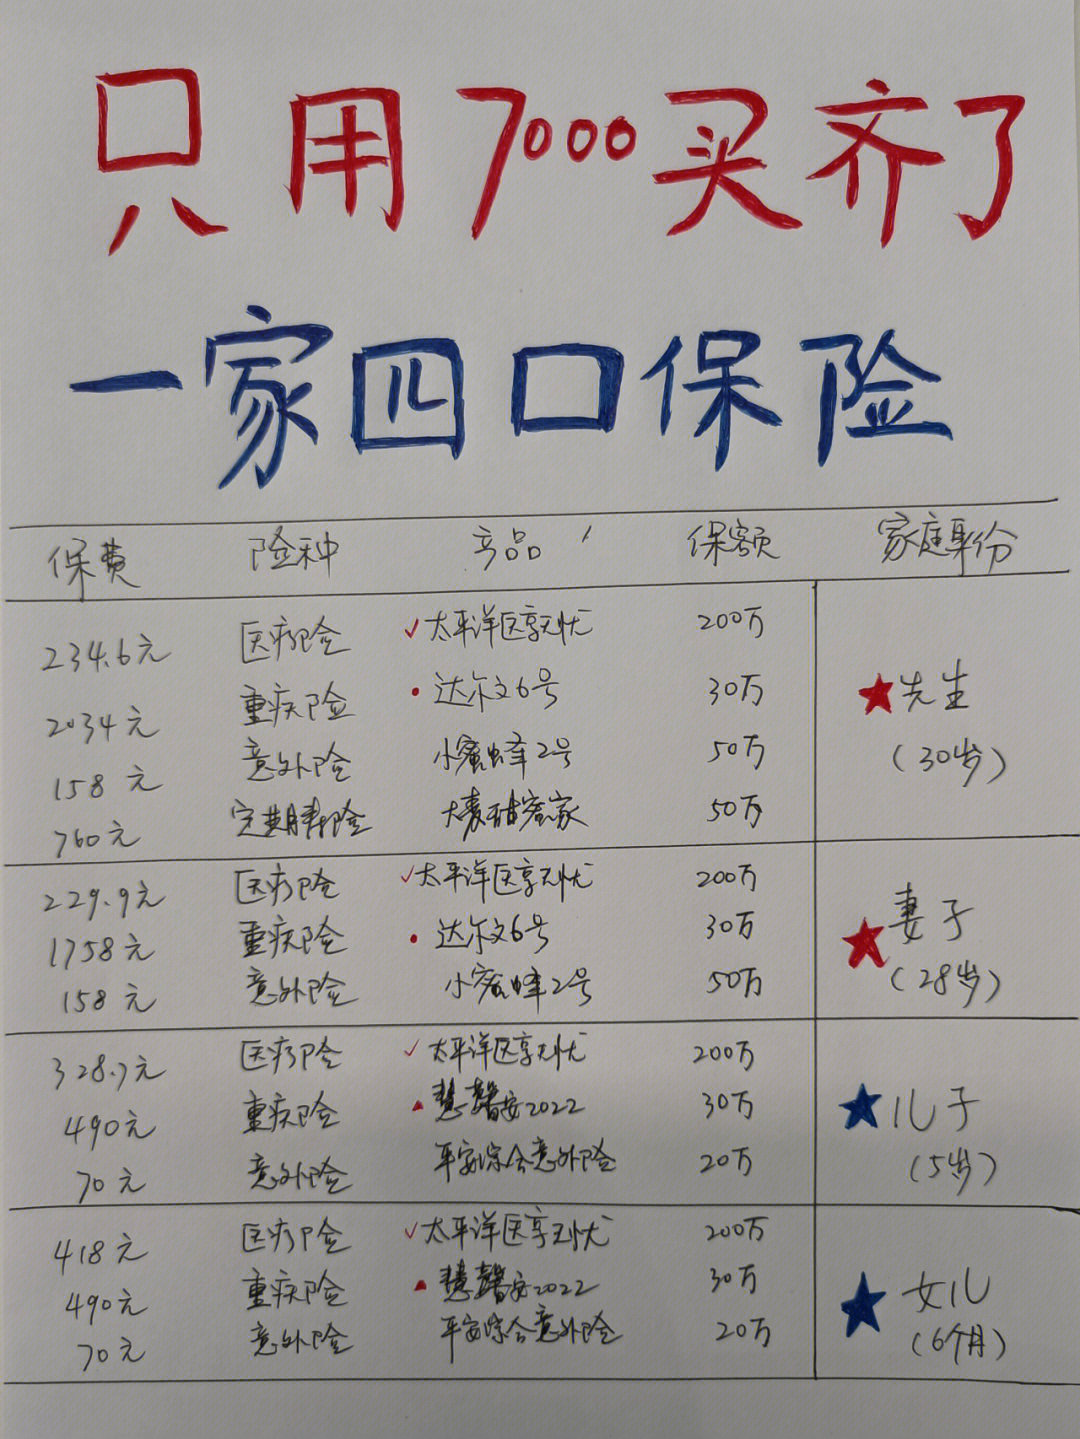 只用7000买齐了
一家四口保险
保费 险种 产品 保额 家庭身份
234.6元 医疗险 ✓太平洋医享无忧 200万
2034元 重疾险 •达尔文6号 30万 ★先生
158元 意外险 小蜜蜂2号 50万 (30岁)
760元 定期寿险 大麦甜蜜家 50万
229.9元 医疗险 ✓太平洋医享无忧 200万
1758元 重疾险 •达尔文6号 30万 ★妻子
158元 意外险 小蜜蜂2号 50万 (28岁)
328.7元 医疗险 ✓太平洋医享无忧 200万
490元 重疾险 ▲慧馨安2022 30万 ★儿子
70元 意外险 平安综合意外险 20万 (5岁)
418元 医疗险 ✓太平洋医享无忧 200万
490元 重疾险 ▲慧馨安2022 30万 ★女儿
70元 意外险 平安综合意外险 20万 (6个月)